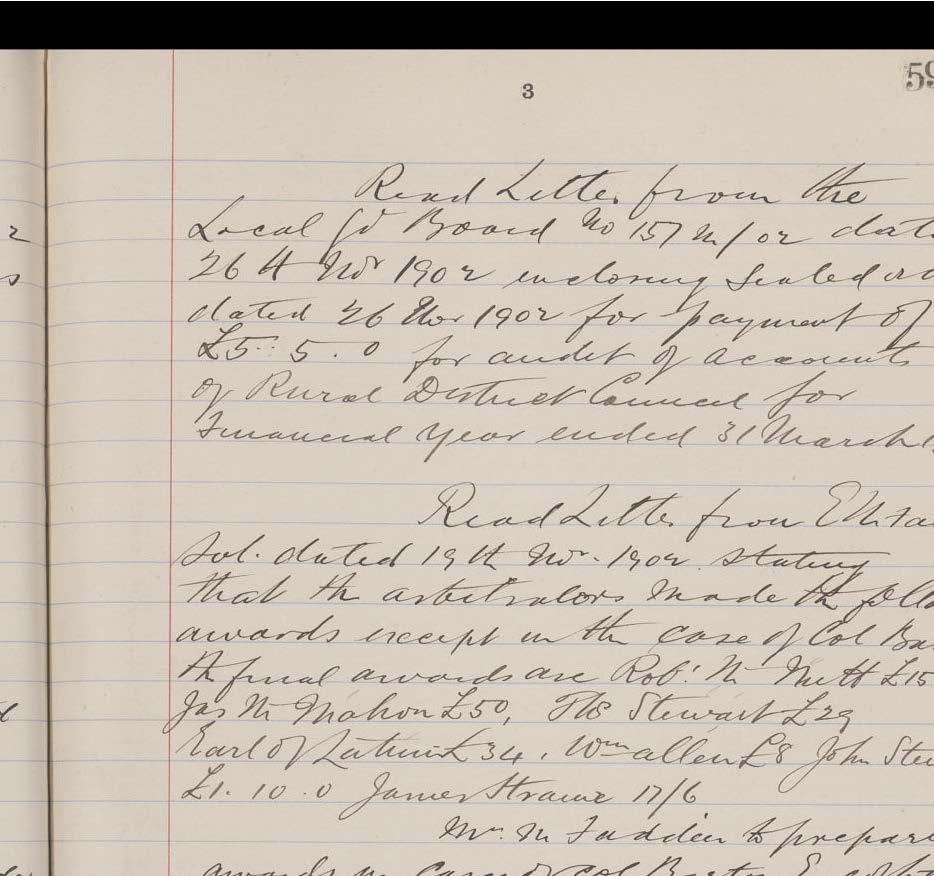 3
59
Read Letter from the
Local Gd Board No 157 M/02 dat
26th Novr 1902 enclosing Sealed
dated 26 Nov 1902 for payment of
£5. 5. 0 for audit of accounts
of Rural District Council for
Financial Year ended 31 March
Read Letter from
Sol. dated 19th Novr. 1902. stating
that the arbitrators made the follo
awards except in the case of Col Ba
the final awards are Robt. Mc £15
Jas Mc Mahon £50, Thos Stewart £29
Earl of £34. Wm allen £8 John Stew
£1. 10. 0 James 17/6
Mr. Mc Fadden to prepare
awards in case of Col